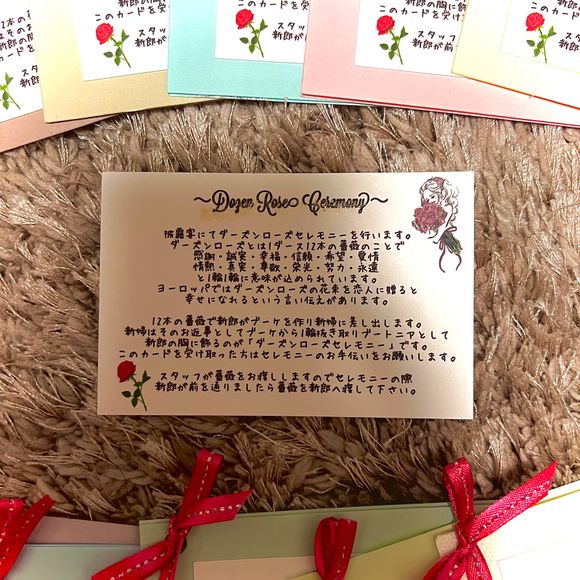 12本の
はその
新郎の
カード
スタッ
新郎が
このカードを受
スタッフ
新郎が前
新郎の胸に飾
このカードを受け
スタッ
新郎が
新郎の胸に飾
このカードを受け
スタッフ
新郎が前
新郎の胸
このカードを受け
スタッフ
新郎が前
~Dozen Rose Ceremony~
披露宴にてダーズンローズセレモニーを行います。
ダーズンローズとは1ダース12本の薔薇のことで
感謝・誠実・幸福・信頼・希望・愛情
情熱・真実・尊敬・栄光・努力・永遠
と1輪1輪に意味が込められています。
ヨーロッパではダーズンローズの花束を恋人に贈ると
幸せになれるという言い伝えがあります。
12本の薔薇で新郎がブーケを作り新婦に差し出します。
新婦はそのお返事としてブーケから1輪抜き取りブートニアとして
新郎の胸に飾るのが「ダーズンローズセレモニー」です。
このカードを受け取った方はセレモニーのお手伝いをお願いします。
スタッフが薔薇をお渡ししますのでセレモニーの際
新郎が前を通りましたら薔薇を新郎へ渡して下さい。